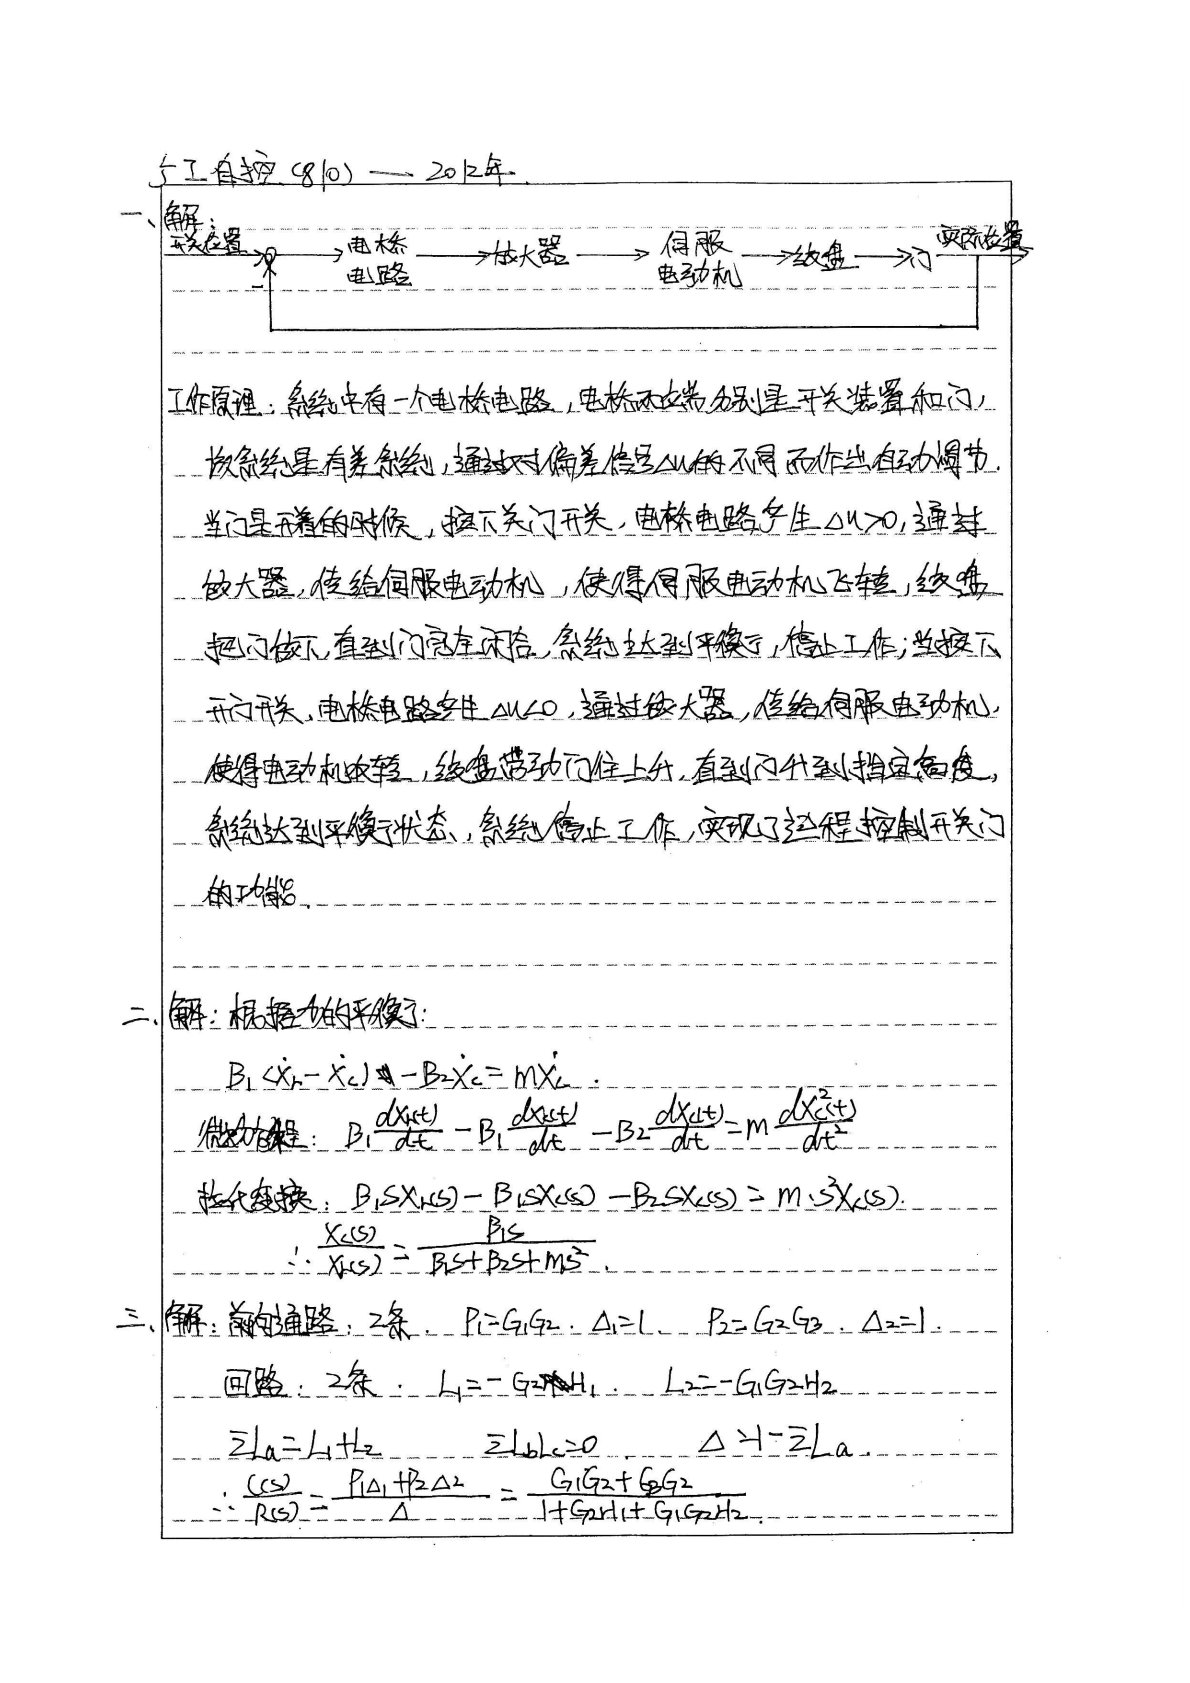 广工自控(810) — 2012年.
一、解:
开关位置 → ⊗ → 电桥电路 → 放大器 → 伺服电动机 → 绞盘 → 门 实际位置
−
工作原理:系统中有一个电桥电路,电桥两端分别是开关装置和门,
故系统是有差系统,通过对偏差信号Δu的不同而作出自动调节.
当门是开着的时候,按下关门开关,电桥电路产生Δu>0,通过
放大器,传给伺服电动机,使得伺服电动机正转,绞盘
把门放下,直到门完全闭合,系统达到平衡,停止工作;当按下
开门开关,电桥电路产生Δu<0,通过放大器,传给伺服电动机,
使得电动机反转,绞盘带动门往上升,直到门升到指定高度,
系统达到平衡状态,系统停止工作,实现了远程控制开关门
的功能.
二、解:根据力的平衡:
B₁(ẋr−ẋc) −B₂ẋc=mẍc.
微分方程: B₁ dXr(t)/dt − B₁ dXc(t)/dt − B₂ dXc(t)/dt = m dXc²(t)/dt²
拉氏变换: B₁SXr(s)−B₁SXc(s)−B₂SXc(s)=m·s²Xc(s).
∴ Xc(s)/Xr(s) = B₁s/(B₁s+B₂s+ms²).
三、解:前向通路:2条. P₁=G₁G₂. Δ₁=1. P₂=G₂G₃. Δ₂=1.
回路:2条. L₁=−G₂H₁. L₂=−G₁G₂H₂
ΣLa=L₁+L₂ ΣLbLc=0. Δ=1−ΣLa.
∴ C(s)/R(s) = (P₁Δ₁+P₂Δ₂)/Δ = (G₁G₂+G₃G₂)/(1+G₂H₁+G₁G₂H₂).